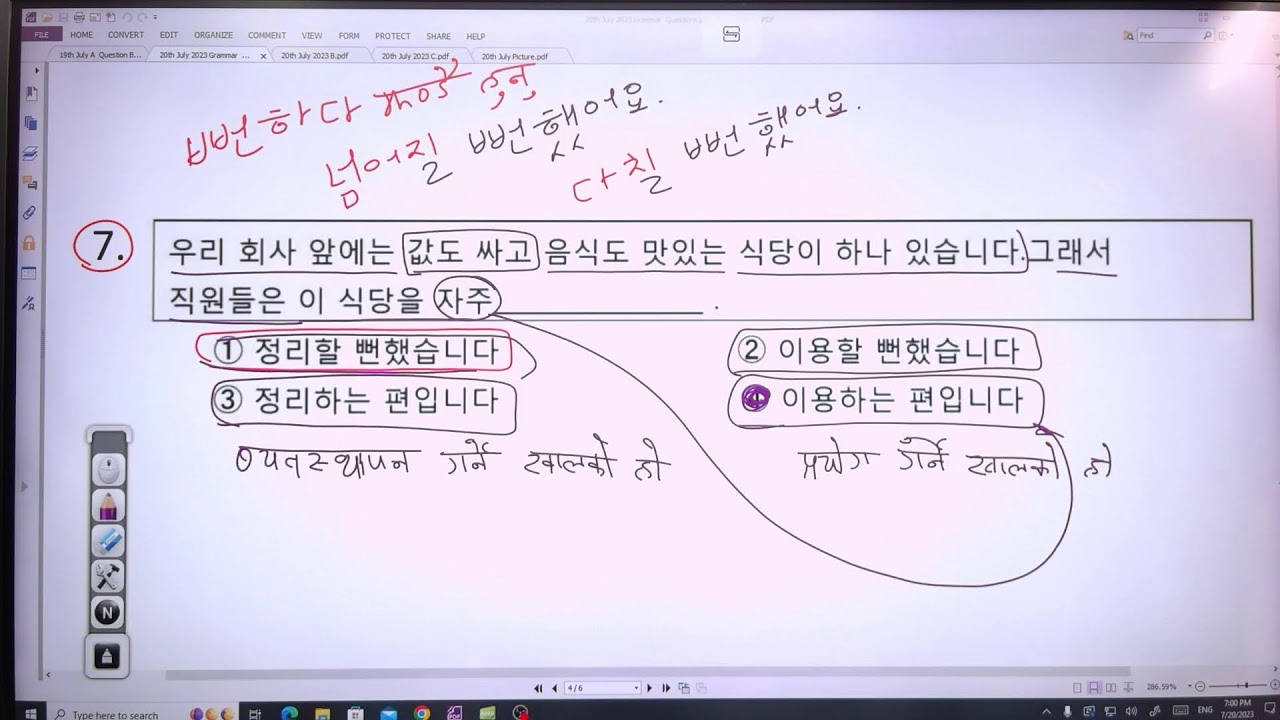 20th July 2023 Grammar Questions.pdf
FILE HOME CONVERT EDIT ORGANIZE COMMENT VIEW FORM PROTECT SHARE HELP Find
19th July A Question B... 20th July 2023 Grammar ... × 20th July 2023 B.pdf 20th July 2023 C.pdf 20th July Picture.pdf
뻔하다
넘어질 뻔했어요.
다칠 뻔했어요.
7. 우리 회사 앞에는 값도 싸고 음식도 맛있는 식당이 하나 있습니다. 그래서
직원들은 이 식당을 자주 ____________ .
① 정리할 뻔했습니다 ② 이용할 뻔했습니다
③ 정리하는 편입니다 ④ 이용하는 편입니다
व्यवस्थापन गर्ने खालको हो प्रयोग गर्ने खालको हो
N
4 / 6 286.59%
Type here to search ENG 7:00 PM
7/20/2023